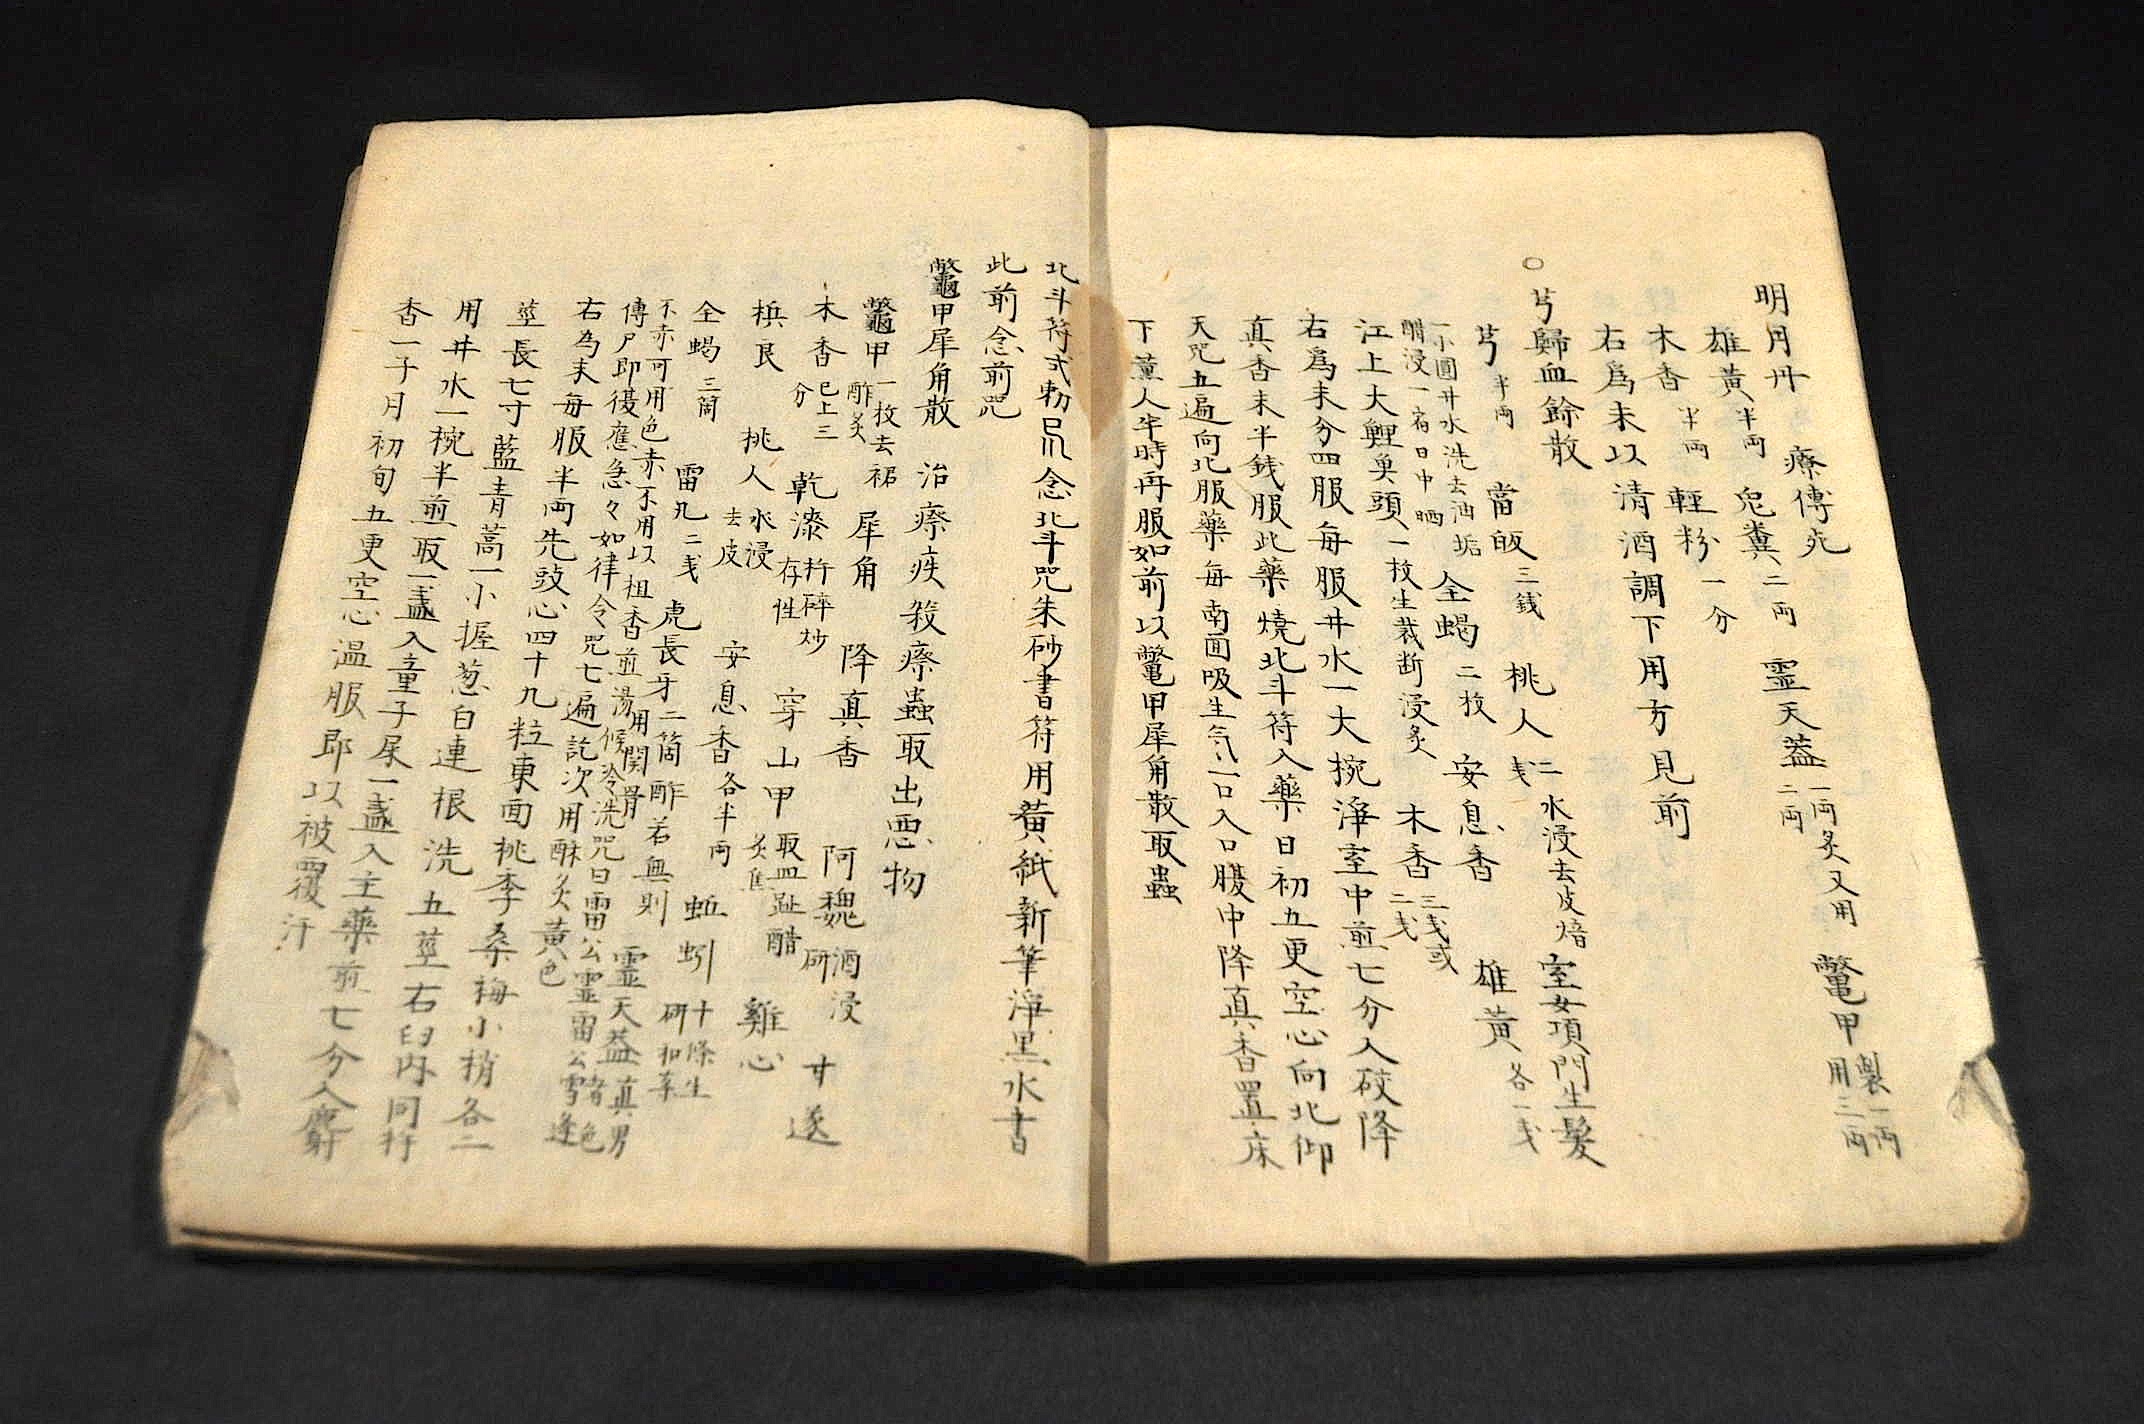 明月丹　療傳屍
雄黃半兩　兎糞二兩　靈天蓋一兩炙又用二兩　鼈甲製一兩用三兩
木香半兩　輕粉一分
右爲末以清酒調下用方見前
○芎歸血餘散
芎半兩　當皈三錢　桃人二戔水浸去皮焙　室女項門生髮
一小圓井水洗去油垢醋浸一宿日中晒　全蝎二枚　安息香　雄黃各一戔
江上大鯉魚頭一枚生裁断浸炙　木香三戔或二戔
右爲末分四服每服井水一大椀淨室中煎七分入砹降
真香末半錢服此藥燒北斗符入藥日初五更空心向北仰
天咒五遍向北服藥每南面吸生気一口入口腹中降真香置床
下薰人半時再服如前以鼈甲犀角散取蟲
北斗符式勅念北斗咒朱砂書符用黃紙新筆淨黑水書
此前念前咒
鼈甲犀角散　治瘵疾殺瘵蟲取出悪物
鼈甲一枚去裙酢炙　犀角　降真香　阿魏酒浸研　甘遂
木香已上三分　乾漆杵碎炒存性　穿山甲取四趾醋炙焦　雞心
梹艮　桃人水浸去皮　安息香各半兩　蚯蚓十條生研和辜
全蝎三箇　雷丸二戔　虎長牙二箇酢若無則用関骨　靈天蓋真男色
不赤可用色赤不用以柤香煎湯候冷洗咒曰雷公靈雷公雪逢
傳尸即復應急々如律令咒七遍訖次用酥炙黃色
右為末每服半兩先豉心四十九粒東面桃李桑梅小梢各二
莖長七寸藍青蒿一小握葱白連根洗五莖右臼內同杵
用井水一椀半煎取一盞入童子尿一盞入主藥煎七分入麝
香一子月初旬五更空心溫服即以被覆汗